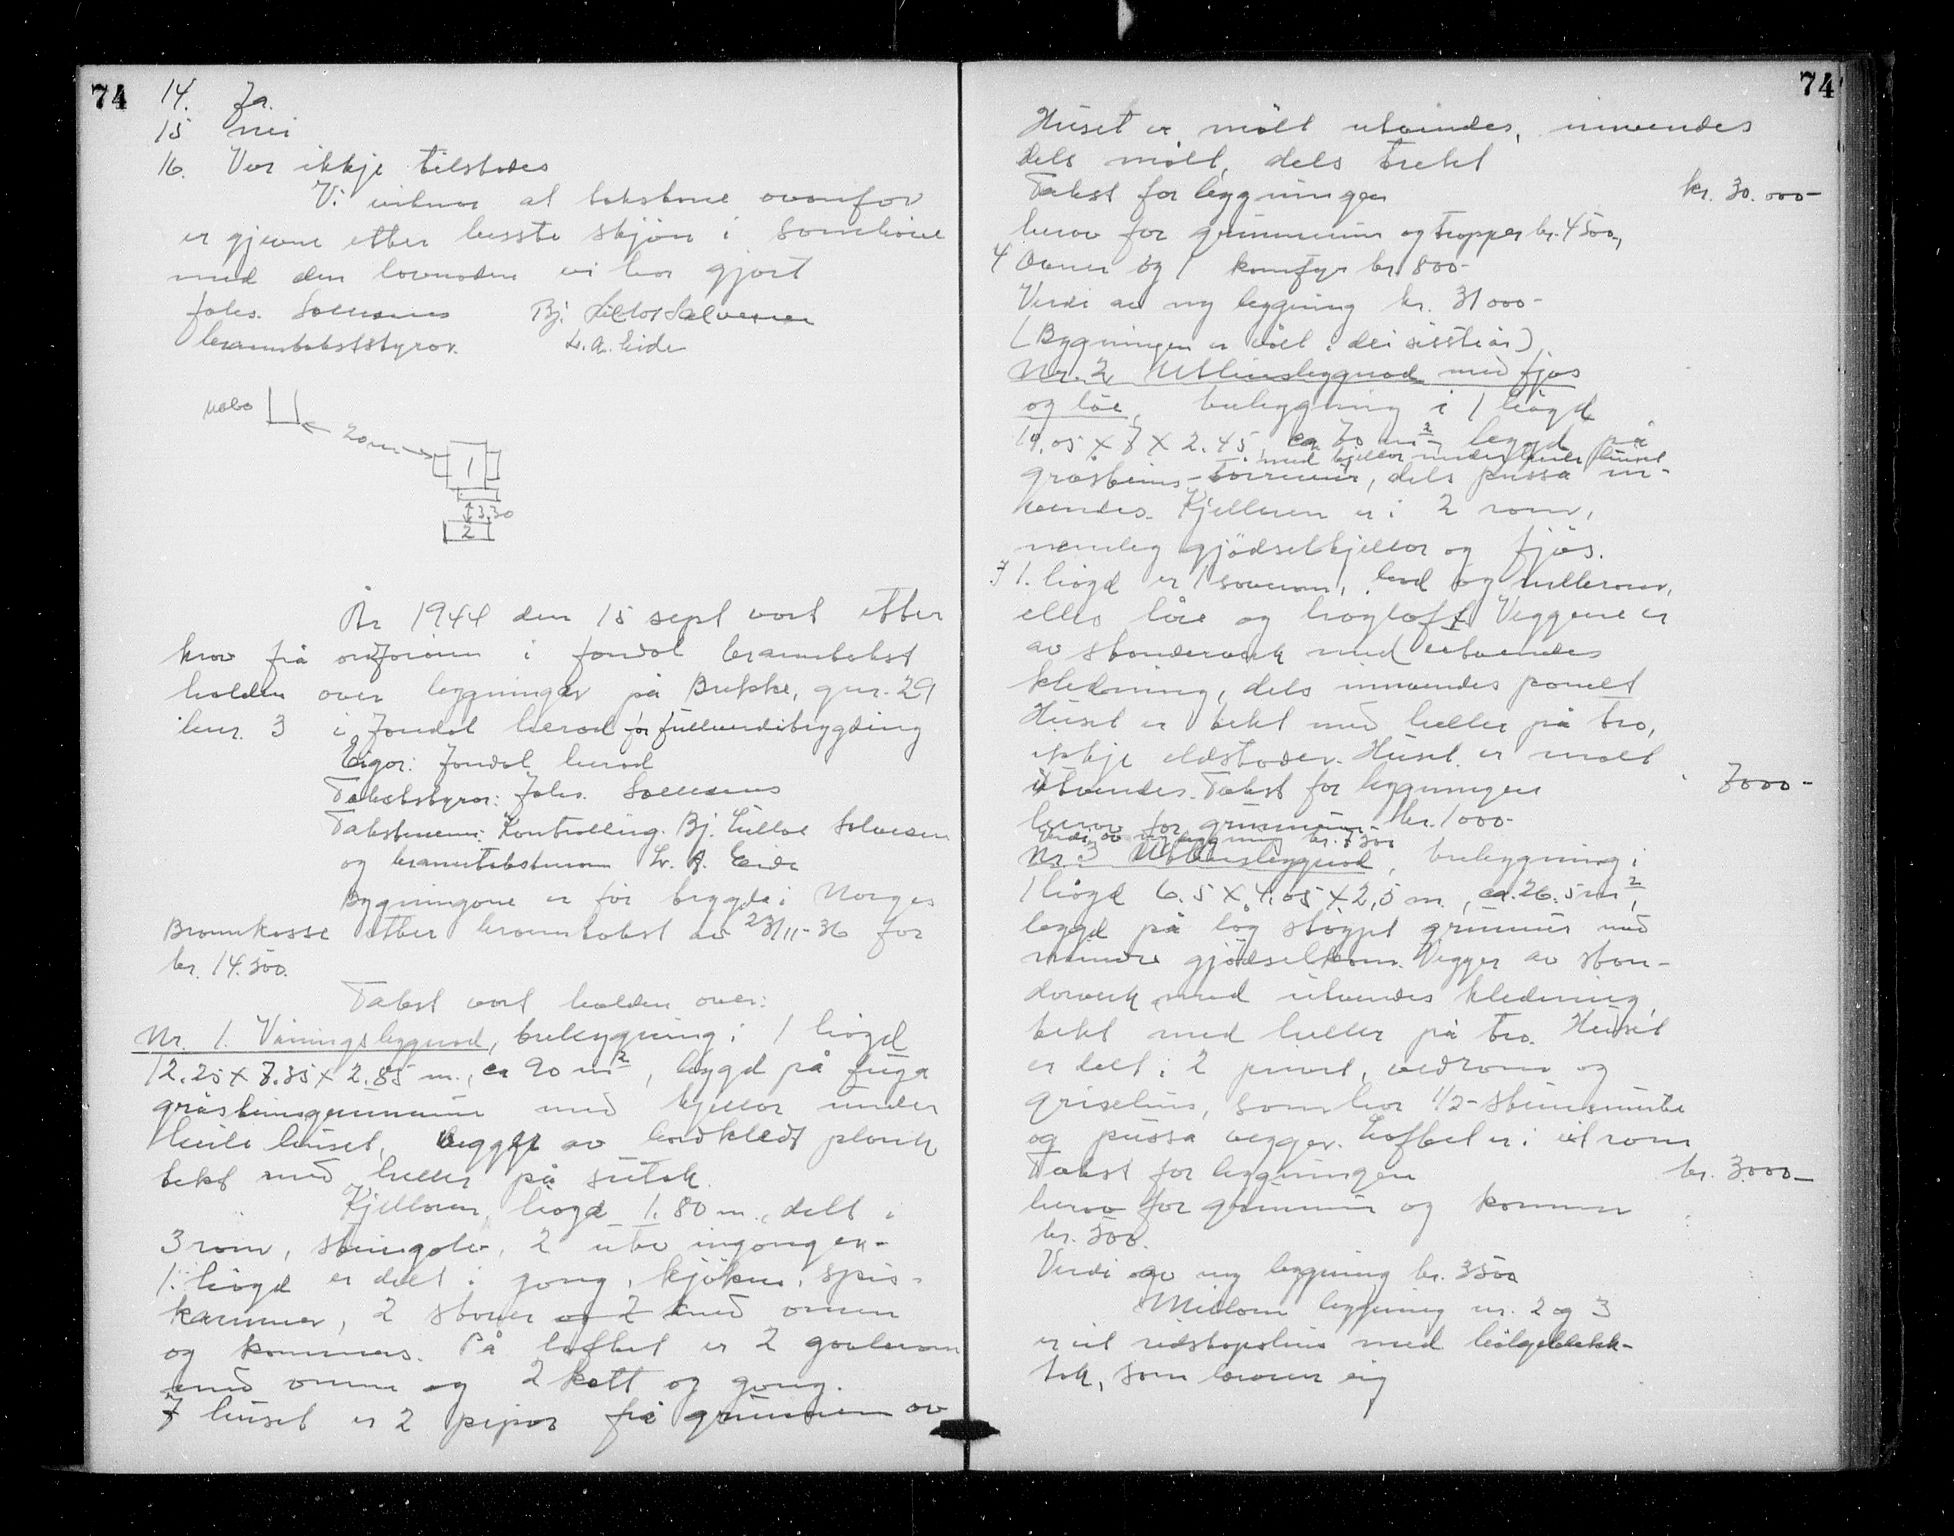 74
14. Ja.
15 nei
16. Var ikkje tilstades
Vi vitnar at takstane ovanfor
er gjevne etter beste skjön i samhöve
med den lovnaden vi har gjort
Johs. Solesnes Bj. Lilletvedt Salvesen
branntakststyrar. L. A. Eide
nabo
20 m
1
3,30
2
År 1944 den 15 sept vart etter
krav frå ordföraren i Jondal branntakst
halden over bygningar på Brekke, gnr. 29
bnr. 3 i Jondal herad for fullverdibrygding
Eigar: Jondal herad
Takststyrar: Johs. Solesnes
Takstmenn: Kontrolling. Bj. Salvesen
og branntakstmann L. A. Eide
Bygningane er för trygda i Norges
Brannkasse etter branntakst av 23/11-36 for
kr. 14.500.
Takst vart halden over:
Nr. 1. Våningsbygnad, trebygning i 1 högd
12.25 x 7.35 x 2.85 m., ca 90 m2, bygd på fuga
gråsteinsgrunnmur med kjellar under
heile huset, vegger av bordkledt plank
tekt med heller på sutak.
Kjellaren, högd 1.80 m., delt i
3 rom, steingolv, 2 utv inngonger.
1. högd er delt i gong, kjöken, spis-
kammer, 2 stover med omn
og kammers. På loftet er 2 gavlrom
med omn og 2 kott og gong.
I huset er 2 pipor frå grunnen av
74
Huset er målt utvendes, innvendes
dels målt, dels trekt
Takst for bygningen kr. 30.000-
herav for grunnmur og trapper kr. 4500,
4 Ovner og 1 komfyr kr. 800-
Verdi av ny bygning kr. 31000-
(Bygningen er völt i dei siste år)
Nr. 2 Uthusbygnad med fjös
og löe, trebygning i 1 högd
10.05 x 7 x 2.45 ca 70 m2 bygd på
med kjellar under heile huset
gråsteins-törrmur, dels pussa in-
vendes. Kjellaren er i 2 rom,
nemleg gjödselkjellar og fjös.
I 1. högd er 1 soverom, bad og rullerom,
elles löe og högloft. Veggene er
av stenderverk med utvendes
kledning, dels innvendes panelt
Huset er tekt med heller på tro,
ikkje eldstader. Huset er målt
utvendes. Takst for bygningen 7000-
herav for grunnmur kr. 1000-
Verdi av ny bygning kr. 7300
Nr. 3 Uthusbygnad, trebygning i
1 högd 6.5 x 4.05 x 2,5 m., ca. 26.5 m2,
bygd på låg stöypt grunnmur med
mindre gjödselrom. Vegger av sten-
derverk med utvendes kledning,
tekt med heller på tro. Huset
er delt i 2 privet, vedrom og
grisehus, som har 1/2-steinsmura
og pussa vegger. Loftet er i eit rom
Takst for bygningen kr. 3000-
herav for grunnmur og kummer
kr. 500.
Verdi av ny bygning kr. 3500
Millom bygning nr. 2 og 3
er eit reidskapshus med bölgeblekk-
tak, som lener seg